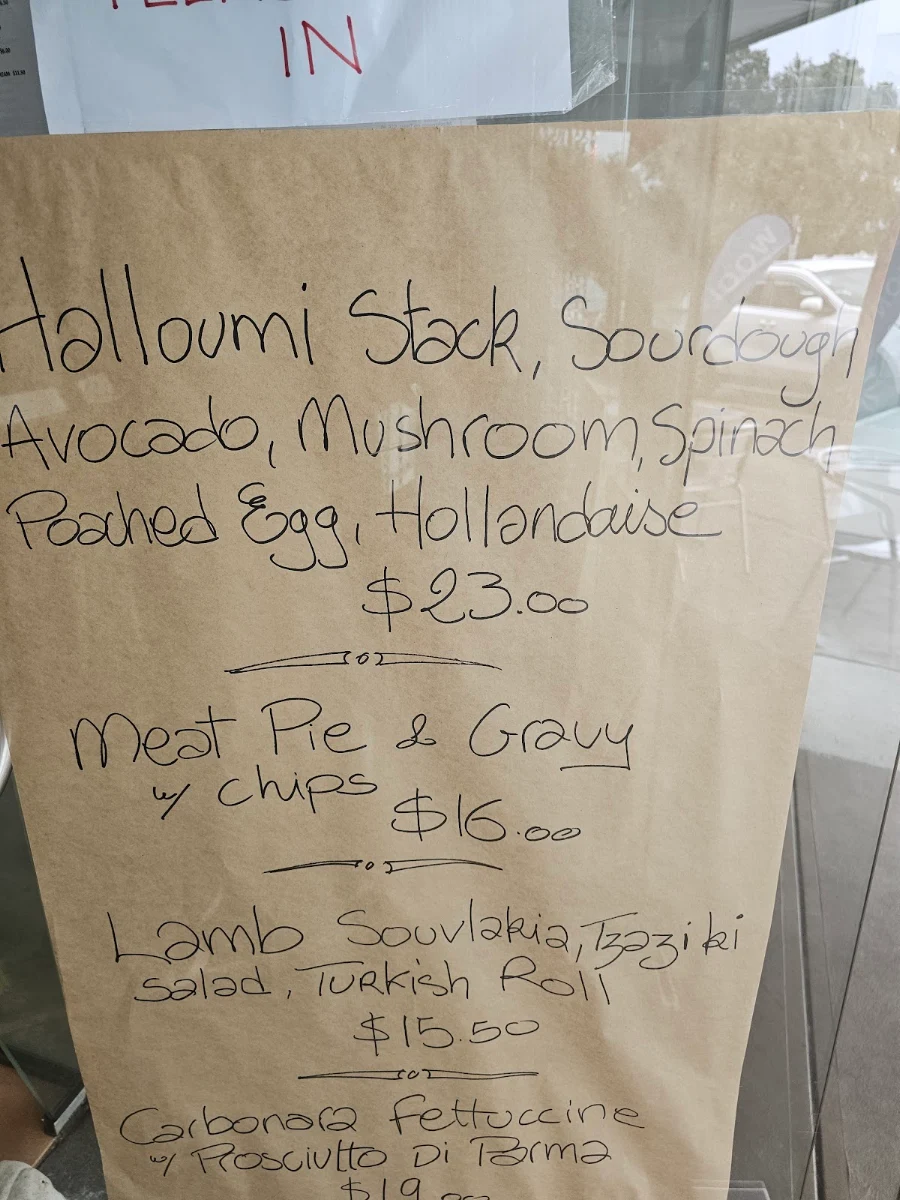 IN
Halloumi Stack, Sourdough
Avocado, Mushroom, Spinach
Poached Egg, Hollandaise
$23.00
Meat Pie & Gravy
w/ chips
$16.00
Lamb Souvlakia, Tzaziki
salad, Turkish Roll
$15.50
Carbonara Fettuccine
w/ Prosciutto Di Parma
$19.00